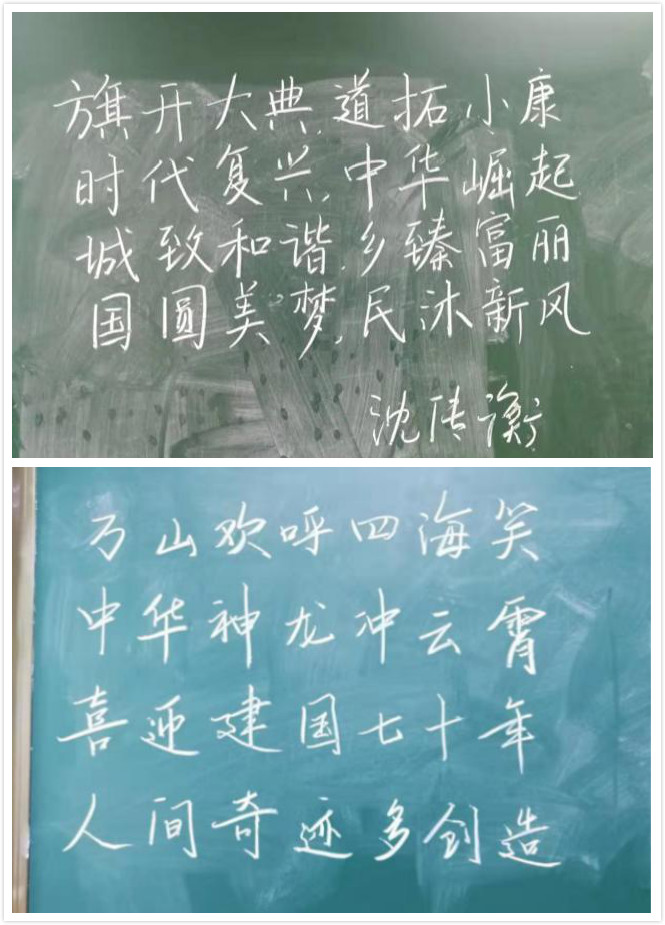 旗开大典,道拓小康
时代复兴,中华崛起
城致和谐,乡臻富丽
国圆美梦,民沐新风
沈传衡
万山欢呼四海笑
中华神龙冲云霄
喜迎建国七十年
人间奇迹多创造